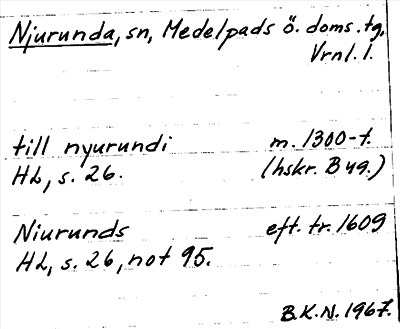 Njurunda, sn, Medelpads ö. doms.tg,
Vrnl. l.
till nyurundi m. 1300-t.
HL, s. 26. (hskr. B ug.)
Niurunds eft. tr. 1609
HL, s. 26, not 95.
B.K.N. 1967.